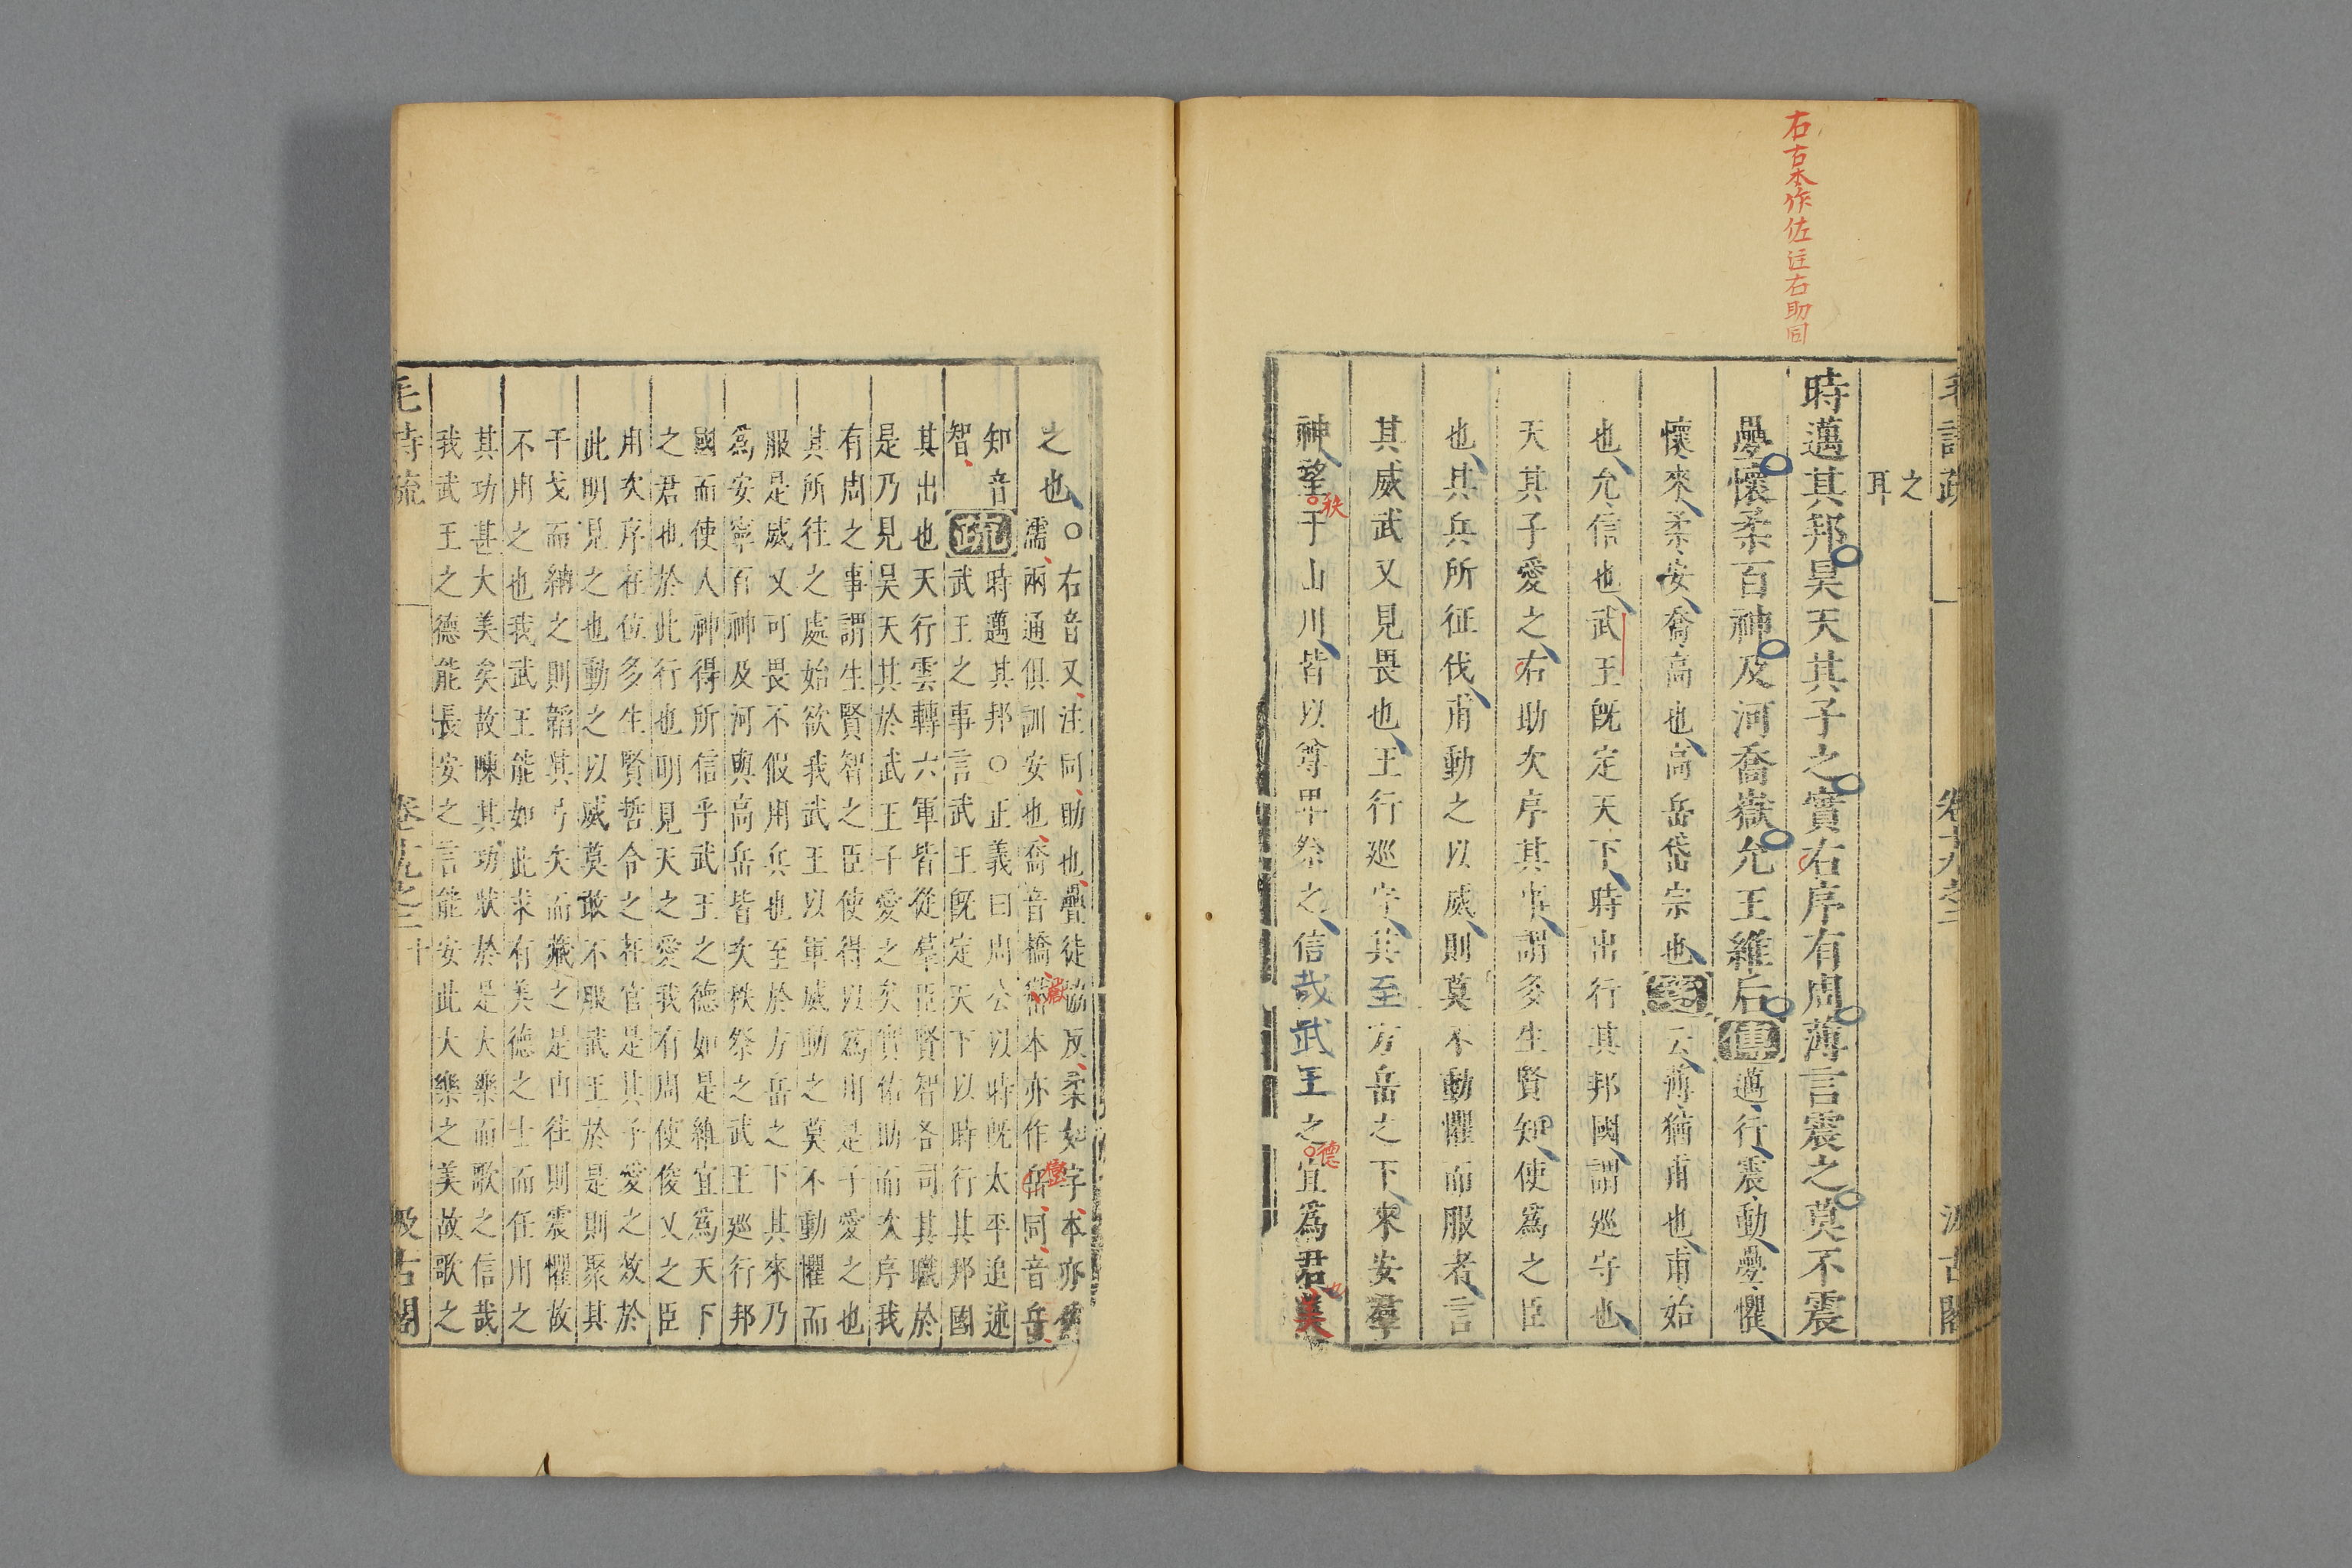 右古本作佐注右助同
毛詩疏 卷十九之二 汲古閣
之
耳
時邁其邦昊天其子之實右序有周薄言震之莫不震
疊懷柔百神及河喬嶽允王維后傳邁行震動疊懼
懷來柔安喬高也高岳岱宗也箋云薄猶甫也甫始
也允信也武王旣定天下時出行其邦國謂巡守也
天其子愛之右助次序其事謂多生賢知使爲之臣
也其兵所征伐甫動之以威則莫不動懼而服者言
其威武又見畏也王行巡守其至方岳之下來安羣
神望于山川皆以尊卑祭之信哉武王之宜爲君美
秩
德
也
之也○右音又注同助也疊徒協反柔如字本亦作
濡兩通俱訓安也喬音橋嶽本亦作岳同音岳
嶽
知音時邁其邦○正義曰周公以時旣太平追述
智疏武王之事言武王旣定天下以時行其邦國
其出也天行雲轉六軍皆從羣臣賢智各司其職於
是乃見昊天其於武王子愛之矣實佑助而次序我
有周之事謂生賢智之臣使得以爲用是子愛之也
其所往之處始欲我武王以軍威動之莫不動懼而
服是威又可畏不假用兵也至於方岳之下其來乃
爲安寧百神及河與高岳皆次秩祭之武王巡行邦
國而使人神得所信乎武王之德如是維宜爲天下
之君也於此行也明見天之愛我有周使俊乂之臣
用次序在位多生賢哲令之在官是其子愛之效於
此明見之也動之以威莫敢不服武王於是則聚其
干戈而納之則韜其弓矢而藏之是由往則震懼故
不用之也我武王能如此求有美德之士而任用之
其功甚大美矣故陳其功狀於是大樂而歌之信哉
我武王之德能長安之言能安此大樂之美故歌之
毛詩疏 卷十九之二 十 汲古閣